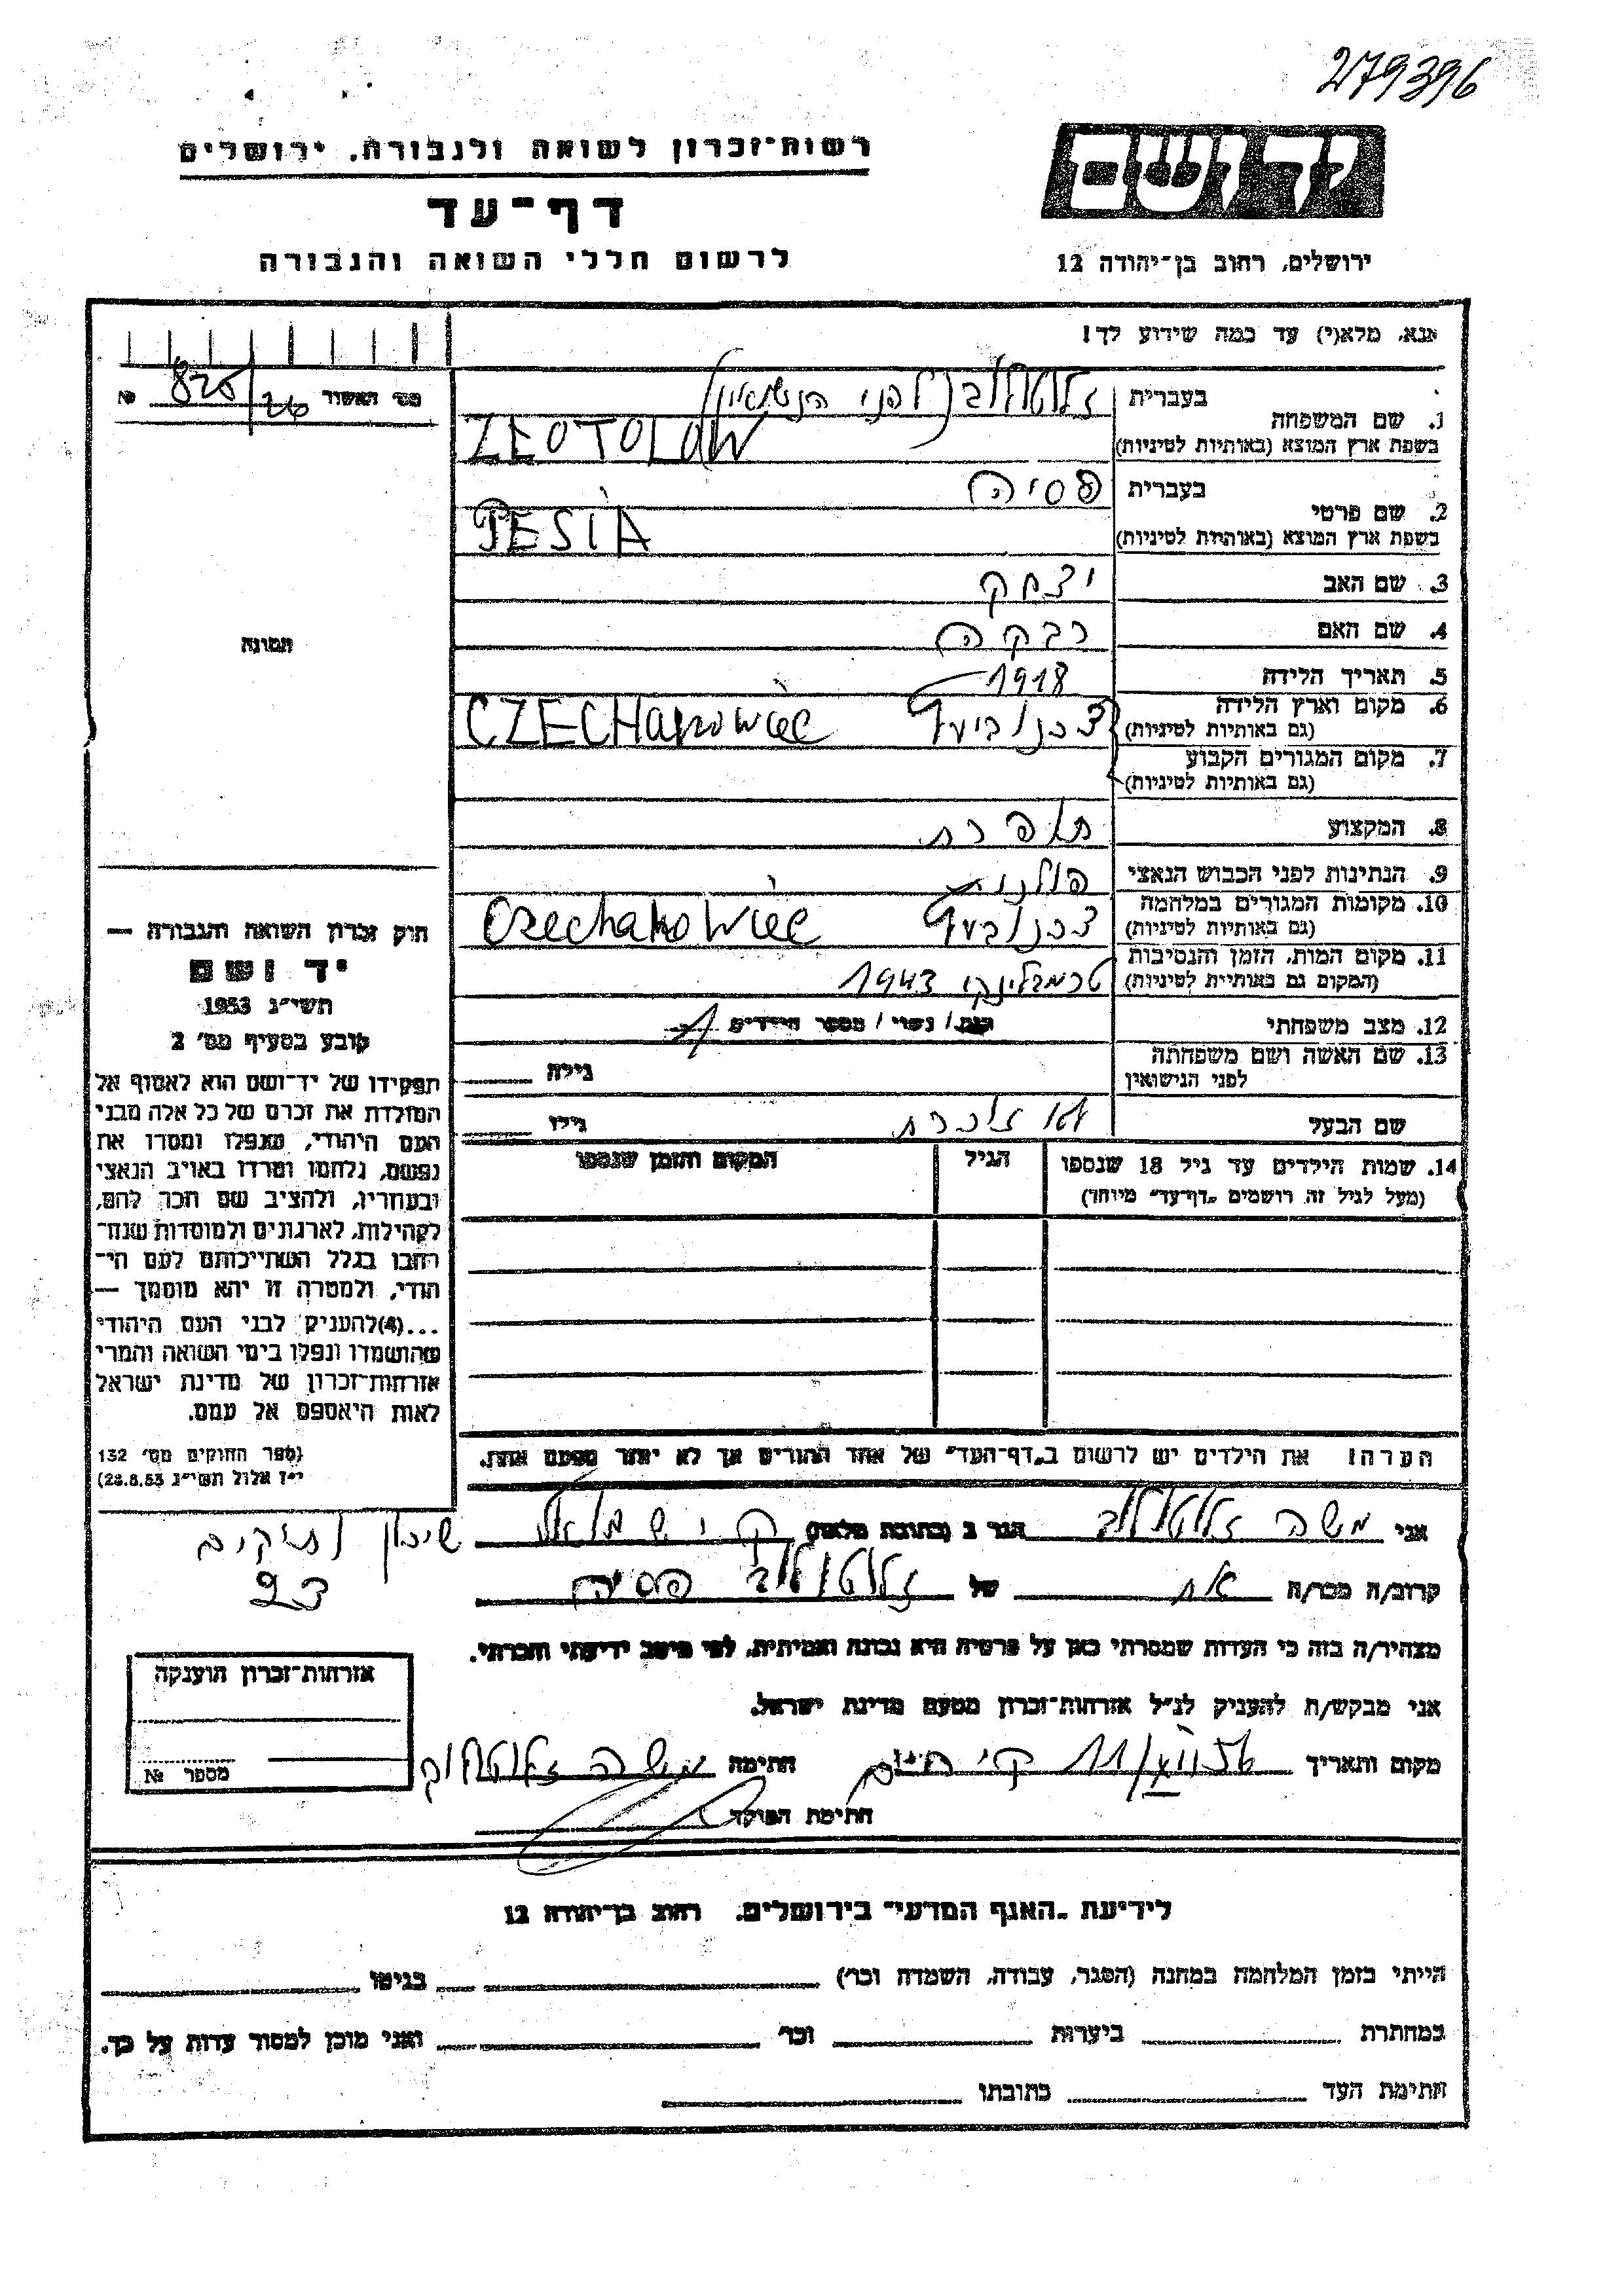 279396
יד ושם
רשות-זכרון לשואה ולגבורה. ירושלים
דף-עד
לרשום חללי השואה והגבורה
ירושלים, רחוב בן-יהודה 12
אנא, מלא(י) עד כמה שידוע לך!
מס' האשור 825/26 №
1. שם המשפחה בעברית זלוטולוב (לפני הנשואין)
בשפת ארץ המוצא (באותיות לטיניות) ZŁOTOLOW
2. שם פרטי בעברית פסיה
בשפת ארץ המוצא (באותיות לטיניות) PESIA
3. שם האב יצחק
4. שם האם רבקה
5. תאריך הלידה 1918
6. מקום וארץ הלידה
(גם באותיות לטיניות) CZECHanowiec
7. מקום המגורים הקבוע
(גם באותיות לטיניות)
8. המקצוע תופרת
9. הנתינות לפני הכבוש הנאצי פולנית
10. מקומות המגורים במלחמה
(גם באותיות לטיניות) Czechanowiec
11. מקום המות, הזמן והנסיבות
(המקום גם באותיות לטיניות) טרמבלינקי 1943
12. מצב משפחתי רווק/ נשוי/ מספר הילדים 1
13. שם האשה ושם משפחתה
לפני הנישואין גילה
שם הבעל לא זוכרת גילו
14. שמות הילדים עד גיל 18 שנספו הגיל המקום והזמן שנספו
(מעל לגיל זה רושמים "דף-עד" מיוחד)
הערה! את הילדים יש לרשום ב"דף-העד" של אחד ההורים אך לא יותר מפעם אחת.
תמונה
חוק זכרון השואה והגבורה —
יד ושם
תשי"ג 1953
קובע בסעיף מס' 2
תפקידו של יד-ושם הוא לאסוף אל
המולדת את זכרם של כל אלה מבני
העם היהודי, שנפלו ומסרו את
נפשם, נלחמו ומרדו באויב הנאצי
ובעוזריו, ולהציב שם וזכר להם,
לקהילות, לארגונים ולמוסדות שנח-
רבו בגלל השתייכותם לעם הי-
הודי, ולמטרה זו יהא מוסמך —
...(4) להעניק לבני העם היהודי
שהושמדו ונפלו בימי השואה והמרי
אזרחות-זכרון של מדינת ישראל
לאות היאספם אל עמם.
(ספר החוקים מס' 132
י"ז אלול תשי"ג 28.8.53)
אני משה זלוטולוב הגר ב (כתובת מלאה) ק. ישמואל שיכון ותיקים
23
קרוב/ה מכר/ה אח של זלוטולוב פסיה
מצהיר/ה בזה כי העדות שמסרתי כאן על פרטיה היא נכונה ואמיתית, לפי מיטב ידיעתי והכרתי.
אני מבקש/ת להעניק לנ"ל אזרחות-זכרון מטעם מדינת ישראל.
מקום ותאריך ק. חיים 11/XII 56 חתימה משה זלוטולוב
חתימת הפוקד
אזרחות-זכרון הוענקה
מספר №
לידיעת "האגף המדעי" בירושלים. רחוב בן-יהודה 12
הייתי בזמן המלחמה במחנה (הסגר, עבודה, השמדה וכו') בגיטו
במחתרת ביערות וכו' ואני מוכן למסור עדות על כך.
חתימת העד כתובתו